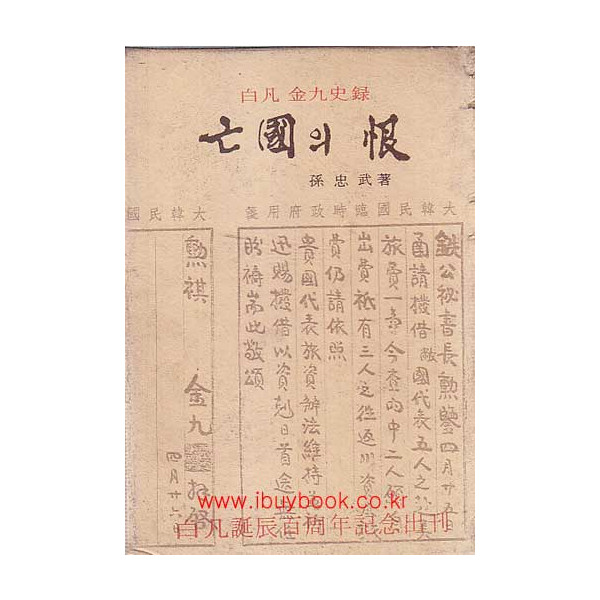 白凡 金九史録
亡國의 恨
孫忠武 著
箋用府政時臨國民韓大
國民韓大
鉄公秘書長勲鑒四月廿五日
函請撥借敝國代表五人之
旅費一事今查內中二人
出費祇有三人之往返川資
費仍請依照
貴國代表旅資辦法維持
迅賜撥借以資尅日首途
盼禱耑此敬頌
勲祺
金九 拜啓
四月廿六日
www.ibuybook.co.kr
白凡誕辰百周年記念出刊